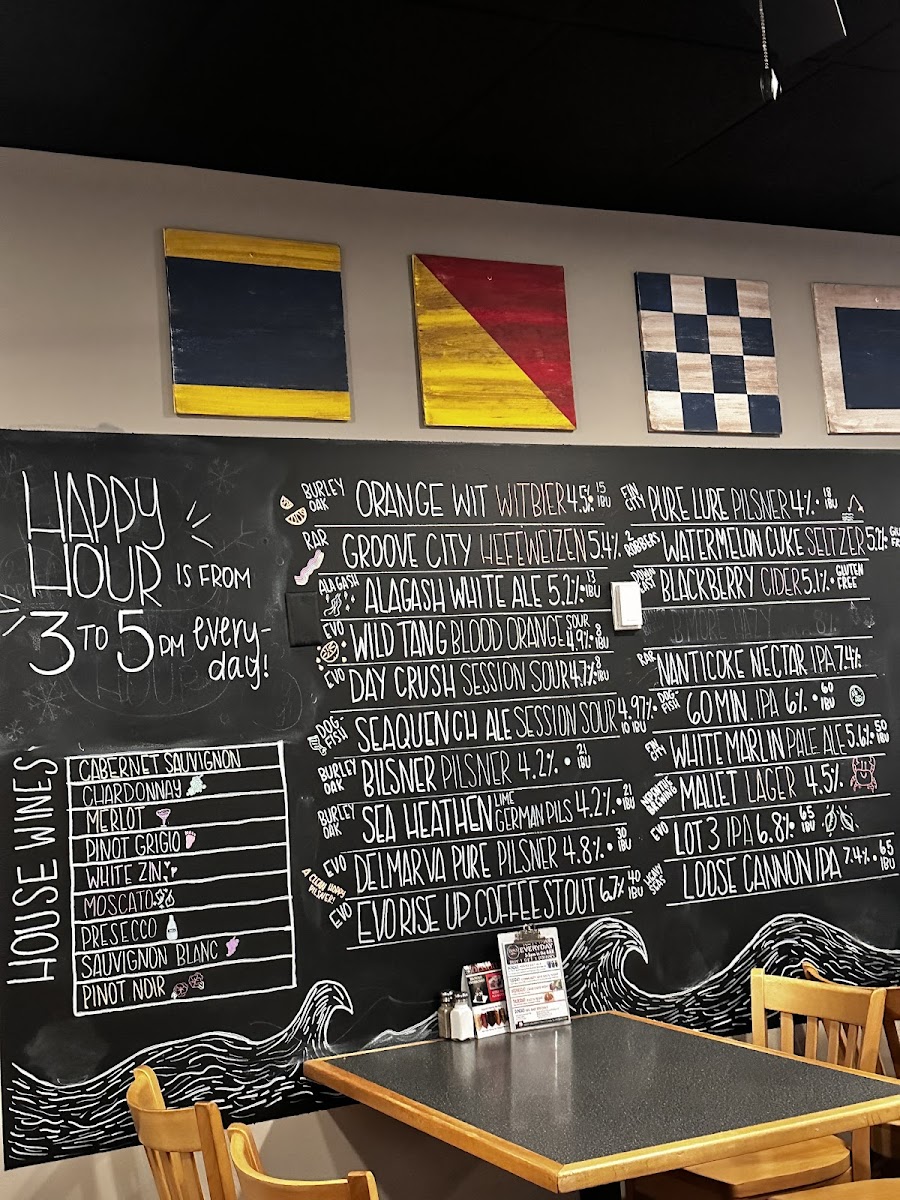 HAPPY
HOUR IS FROM
3 TO 5 PM every-
day!
HOUSE WINES
CABERNET SAUVIGNON
CHARDONNAY
MERLOT
PINOT GRIGIO
WHITE ZIN
MOSCATO
PRESECCO
SAUVIGNON BLANC
PINOT NOIR
BURLEY OAK ORANGE WIT WITBIER 4.5% 15 IBU
RAR GROOVE CITY HEFEWEIZEN 5.4%
ALAGASH ALAGASH WHITE ALE 5.2% 13 IBU
EVO WILD TANG BLOOD ORANGE SOUR 4.9% 8 IBU
EVO DAY CRUSH SESSION SOUR 4.7% 8 IBU
DOG-FISH SEAQUENCH ALE SESSION SOUR 4.9% 10 IBU
BURLEY OAK BILSNER PILSNER 4.2% 21 IBU
BURLEY OAK SEA HEATHEN LIME GERMAN PILS 4.2% 21 IBU
EVO DELMARVA PURE PILSNER 4.8% 30 IBU
A CLEAN HOPPY PILSNER!
EVO EVO RISE UP COFFEE STOUT 6.7% 40 IBU
FIN CITY PURE LURE PILSNER 4% 18 IBU
2 ROBBERS WATERMELON CUKE SELTZER 5.2%
DOWN EAST BLACKBERRY CIDER 5.1% GLUTEN FREE
RAR NANTICOKE NECTAR IPA 7.4%
DOG-FISH 60 MIN. IPA 6% 60 IBU
FIN CITY WHITE MARLIN PALE ALE 5.6% 50 IBU
MALLET LAGER 4.5%
EVO LOT 3 IPA 6.8% 65 IBU
HEAVY SEAS LOOSE CANNON IPA 7.4% 65 IBU
EVERYDAY